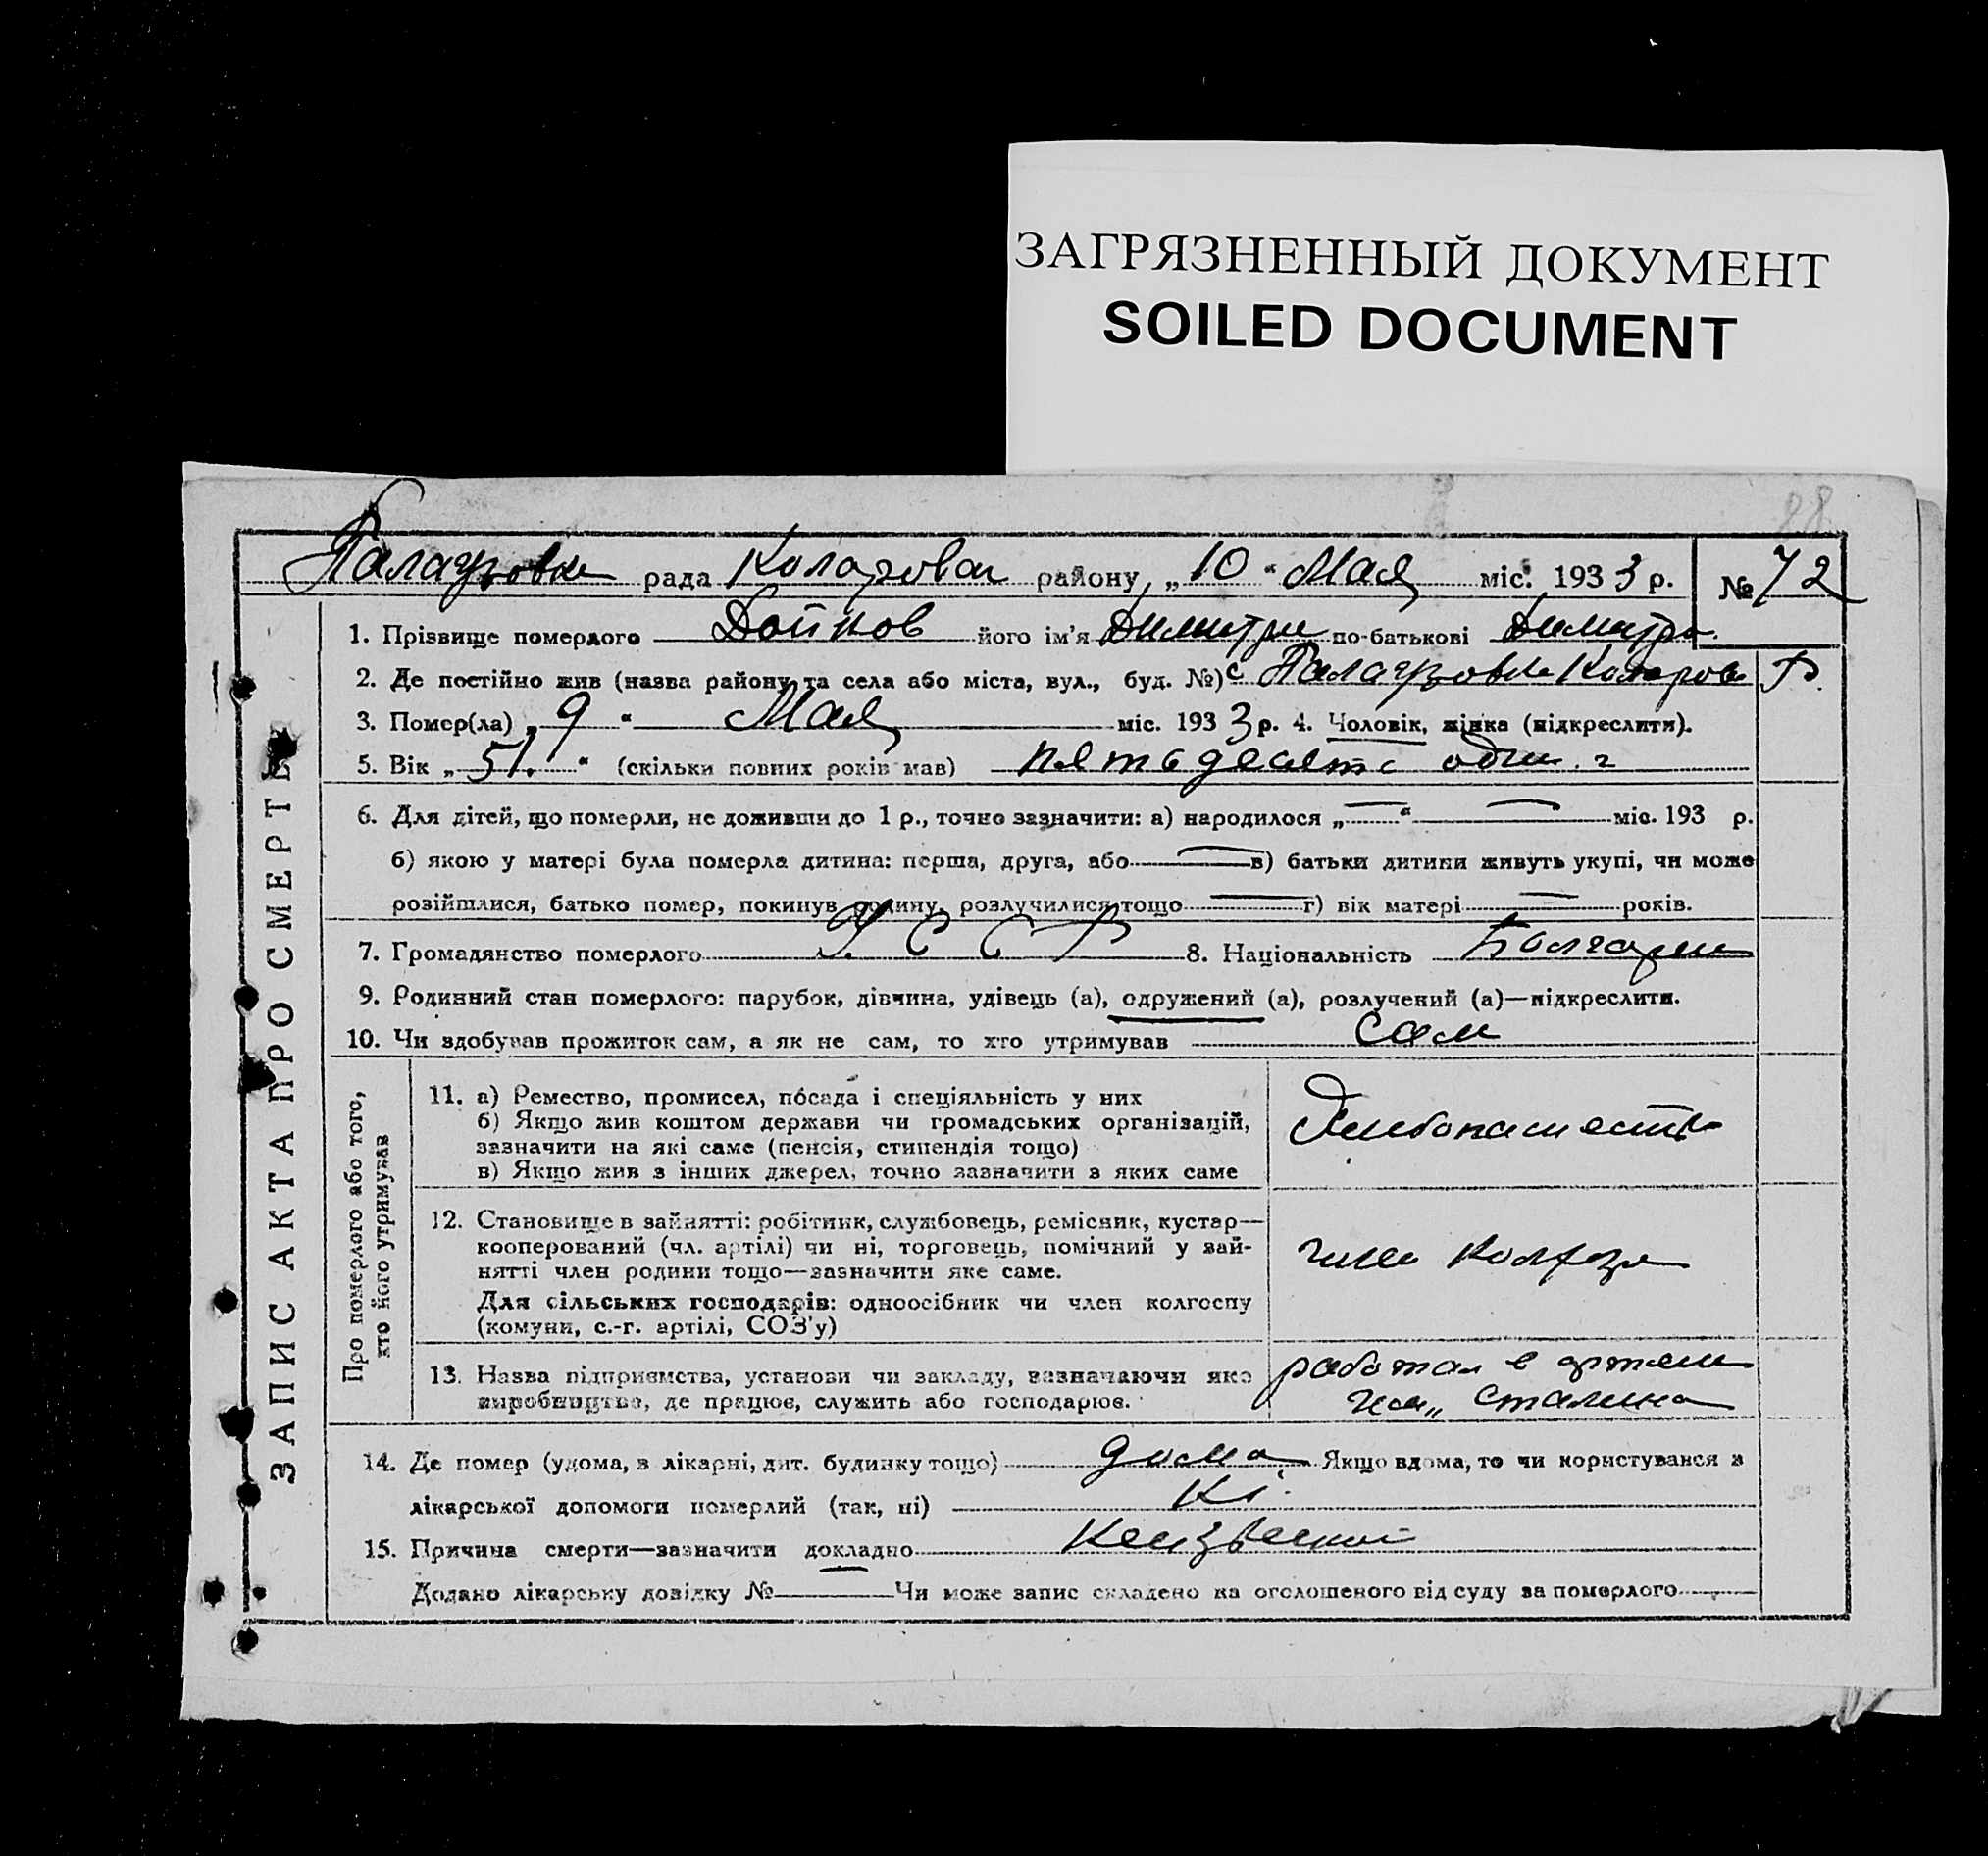 ЗАГРЯЗНЕННЫЙ ДОКУМЕНТ
SOILED DOCUMENT
88
Палаузовка рада Коларовск району, „10“ Мая міс. 1933 р. № 72
ЗАПИС АКТА ПРО СМЕРТЬ
1. Прізвище померлого Дойнов його ім'я Димитри по-батькові Димитро.
2. Де постійно жив (назва району та села або міста, вул., буд. №) с Палаузовка Коларов Р.
3. Помер(ла) „9“ Мая міс. 1933 р. 4. Чоловік, жінка (підкреслити).
5. Вік „51.“ (скільки повних років мав) пятьдесять один. г
6. Для дітей, що померли, не доживши до 1 р., точно зазначити: а) народилося „—“ — міс. 193 р.
б) якою у матері була померла дитина: перша, друга, або — в) батьки дитини живуть укупі, чи може
розійшлися, батько помер, покинув родину, розлучилися тощо — г) вік матері — років.
7. Громадянство померлого У С С Р 8. Національність Болгарин
9. Родинний стан померлого: парубок, дівчина, удівець (а), одружений (а), розлучений (а)—підкреслити.
10. Чи здобував прожиток сам, а як не сам, то хто утримував сам
Про померлого або того,
хто його утримував
11. а) Ремество, промисел, посада і спеціяльність у них
б) Якщо жив коштом держави чи громадських організацій,
зазначити на які саме (пенсія, стипендія тощо)
в) Якщо жив з інших джерел, точно зазначити з яких саме
12. Становище в зайнятті: робітник, службовець, ремісник, кустар—
кооперований (чл. артілі) чи ні, торговець, помічний у зай-
нятті член родини тощо—зазначити яке саме.
Для сільських господарів: одноосібник чи член колгоспу
(комуни, с.-г. артілі, СОЗ'у)
член колхоза
13. Назва підприємства, установи чи закладу, зазначаючи яке
виробництво, де працює, служить або господарює.
работал в артели
им„ Сталина
14. Де помер (удома, в лікарні, дит. будинку тощо) дома Якщо вдома, то чи користувався з
лікарської допомоги померлий (так, ні) Ні.
15. Причина смерти—зазначити докладно Неизвесной
Додано лікарську довідку № — Чи може запис складено на оголошеного від суду за померлого —